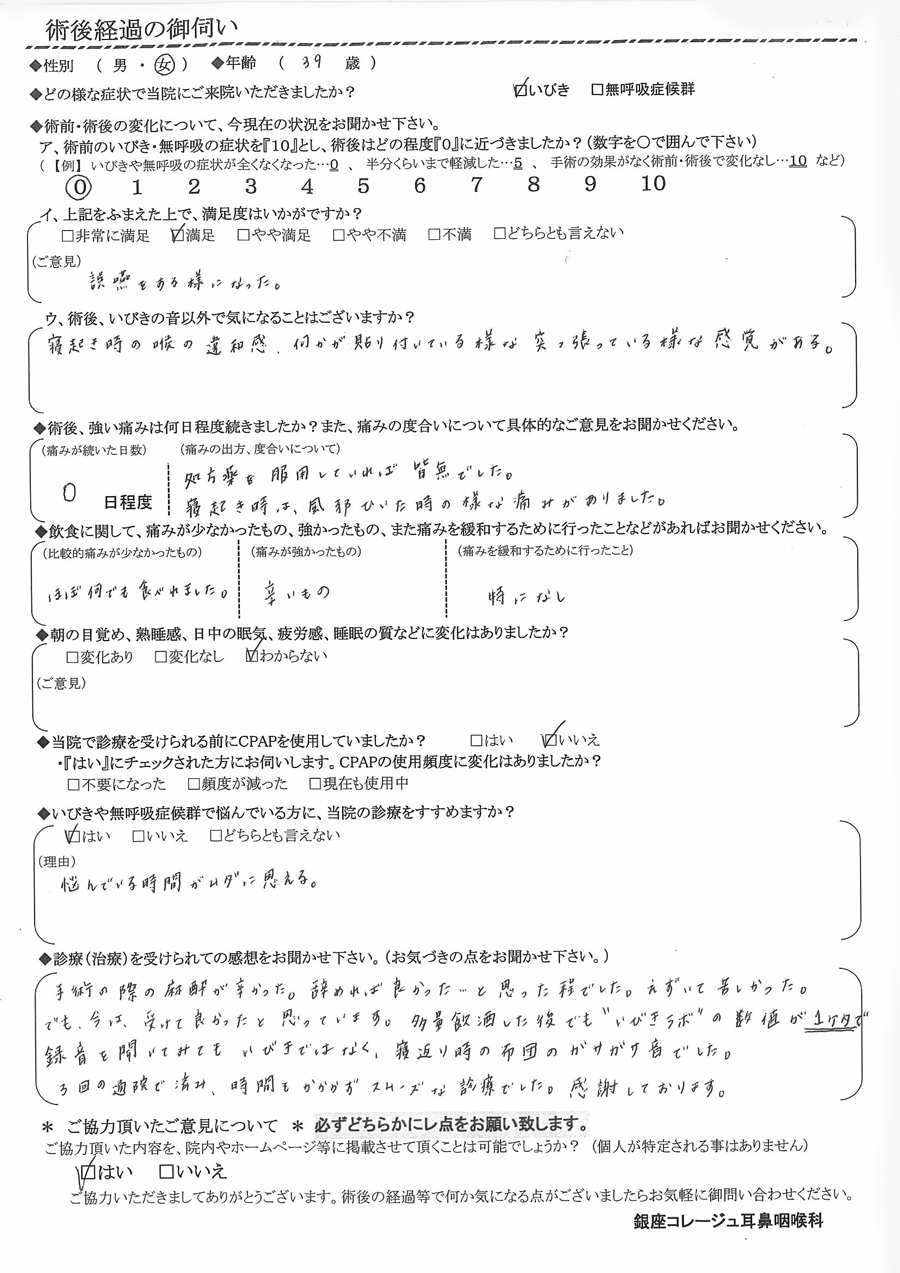 術後経過の御伺い
◆性別 ( 男 ・ 女 ) ◆年齢 ( 39 歳 )
◆どの様な症状で当院にご来院いただきましたか? ☑いびき □無呼吸症候群
◆術前・術後の変化について、今現在の状況をお聞かせ下さい。
ア、術前のいびき・無呼吸の症状を『10』とし、術後はどの程度『0』に近づきましたか?(数字を○で囲んで下さい)
(【例】 いびきや無呼吸の症状が全くなくなった…0 、 半分くらいまで軽減した…5 、 手術の効果がなく術前・術後で変化なし…10 など)
0 1 2 3 4 5 6 7 8 9 10
イ、上記をふまえた上で、満足度はいかがですか?
□非常に満足 ☑満足 □やや満足 □やや不満 □不満 □どちらとも言えない
(ご意見)
誤嚥をする様になった。
ウ、術後、いびきの音以外で気になることはございますか?
寝起き時の喉の違和感、何かが貼り付いている様な突っ張っている様な感覚がある。
◆術後、強い痛みは何日程度続きましたか?また、痛みの度合いについて具体的なご意見をお聞かせください。
(痛みが続いた日数) (痛みの出方、度合いについて)
処方薬を服用していれば皆無でした。
0 日程度 寝起き時は、風邪ひいた時の様な痛みがありました。
◆飲食に関して、痛みが少なかったもの、強かったもの、また痛みを緩和するために行ったことなどがあればお聞かせください。
(比較的痛みが少なかったもの) (痛みが強かったもの) (痛みを緩和するために行ったこと)
ほぼ何でも食べれました。 辛いもの 特になし
◆朝の目覚め、熟睡感、日中の眠気、疲労感、睡眠の質などに変化はありましたか?
□変化あり □変化なし ☑わからない
(ご意見)
◆当院で診療を受けられる前にCPAPを使用していましたか? □はい ☑いいえ
・『はい』にチェックされた方にお伺いします。CPAPの使用頻度に変化はありましたか?
□不要になった □頻度が減った □現在も使用中
◆いびきや無呼吸症候群で悩んでいる方に、当院の診療をすすめますか?
☑はい □いいえ □どちらとも言えない
(理由)
悩んでいる時間がムダに思える。
◆診療(治療)を受けられての感想をお聞かせ下さい。(お気づきの点をお聞かせ下さい。)
手術の際の麻酔が辛かった。辞めれば良かった…と思った程でした。えずいて苦しかった。
でも、今は、受けて良かったと思っています。多量飲酒した後でも"いびきラボ"の数値が1ケタで
録音を聞いてみてもいびきではなく、寝返り時の布団のガサガサ音でした。
3回の通院で済み、時間もかからずスムーズな診療でした。感謝しております。
* ご協力頂いたご意見について * 必ずどちらかにレ点をお願い致します。
ご協力頂いた内容を、院内やホームページ等に掲載させて頂くことは可能でしょうか? (個人が特定される事はありません)
☑はい □いいえ
ご協力いただきましてありがとうございます。術後の経過等で何か気になる点がございましたらお気軽に御問い合わせください。
銀座コレージュ耳鼻咽喉科